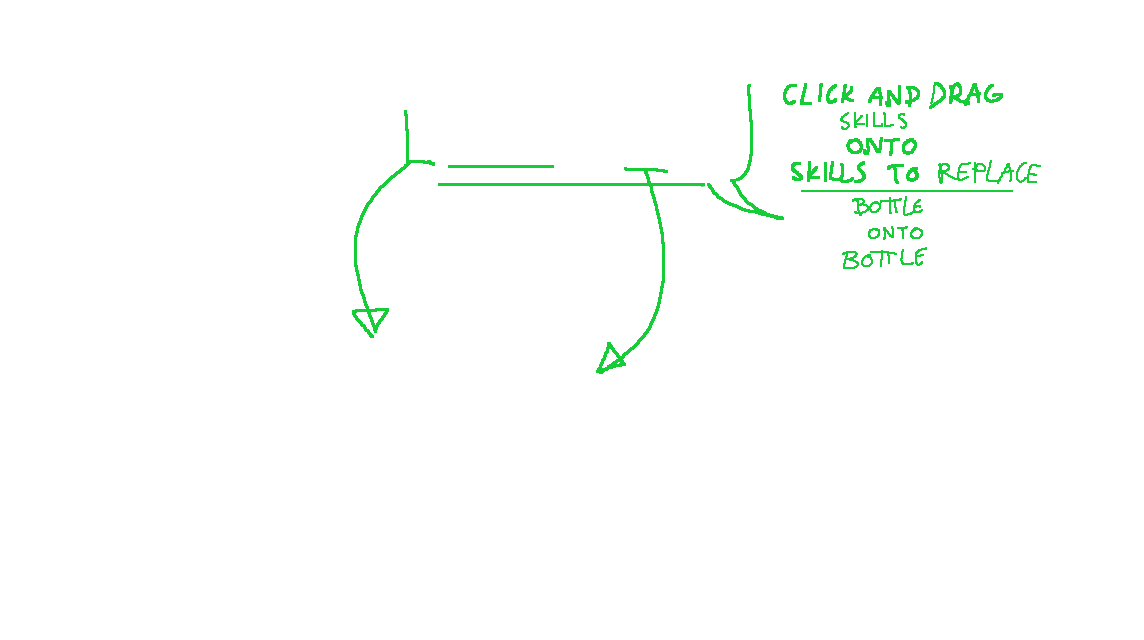 CLICK AND DRAG
SKILLS
ONTO
SKILLS TO REPLACE
BOTTLE
ONTO
BOTTLE